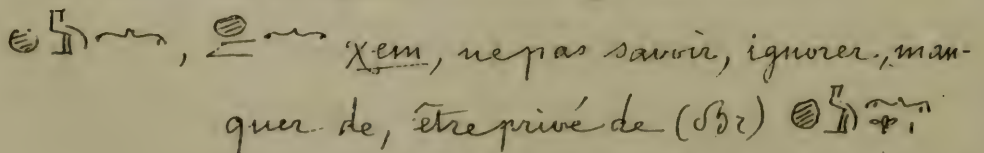 , χem, ne pas savoir, ignorer, man-
quer de, être privé de (Br)